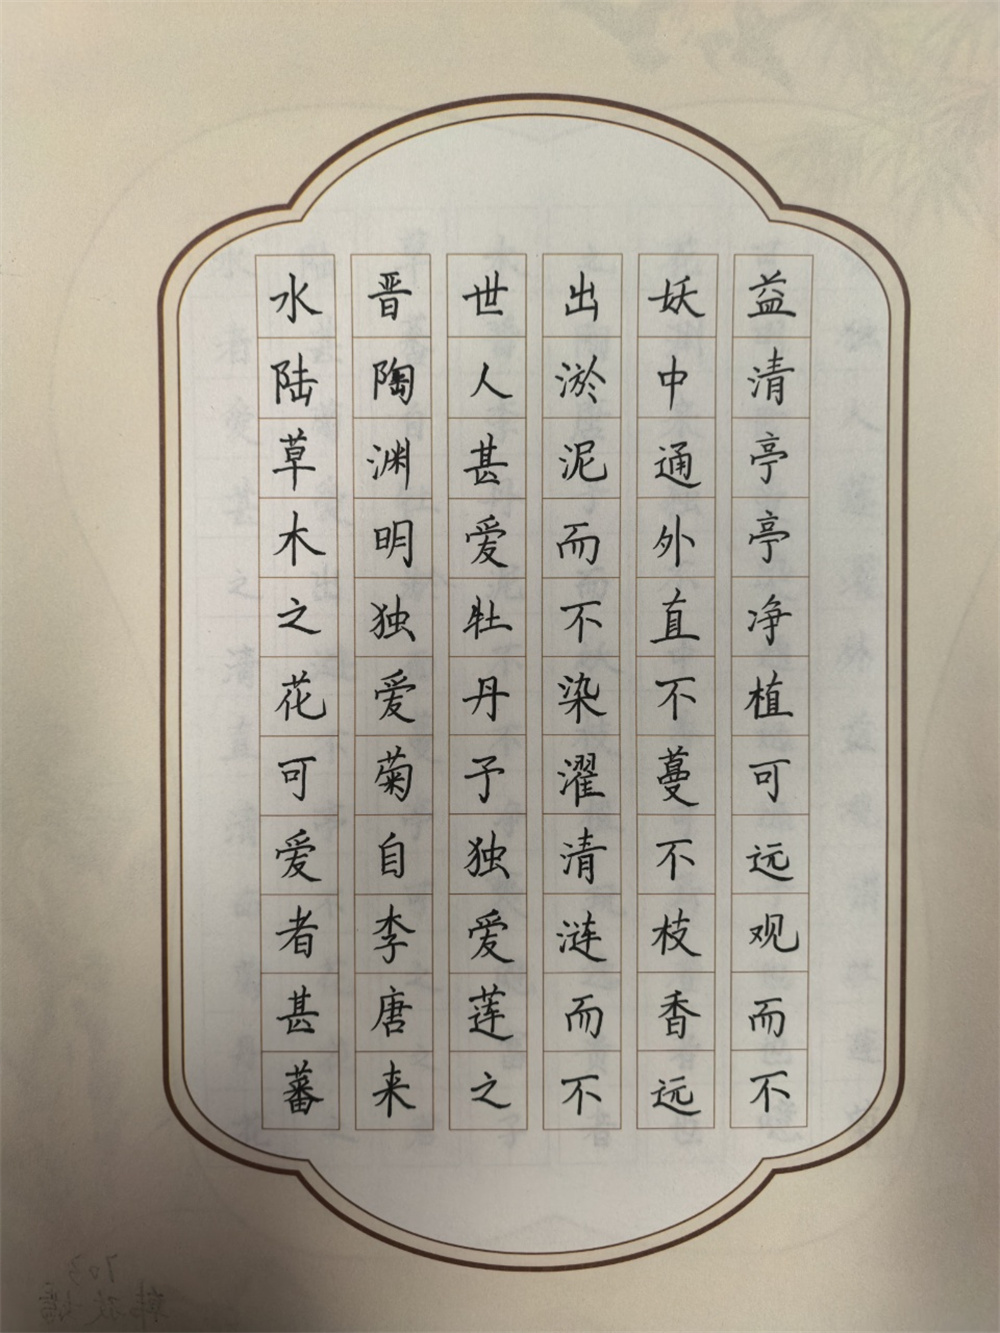 水陆草木之花可爱者甚蕃
晋陶渊明独爱菊自李唐来
世人甚爱牡丹予独爱莲之
出淤泥而不染濯清涟而不
妖中通外直不蔓不枝香远
益清亭亭净植可远观而不